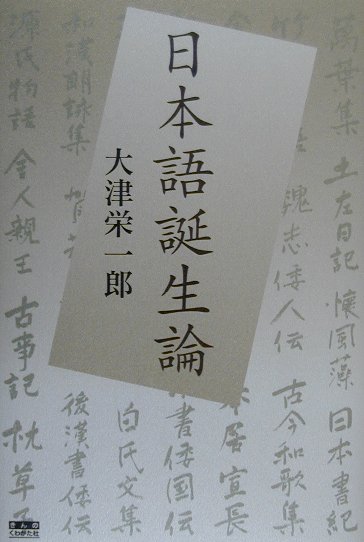 日本語誕生論
大津栄一郎
萬葉集 土左日記 懐風藻 日本書紀
竹
魏志倭人伝 古今和歌集
本居宣長
書倭国伝
白氏文集
和漢朗詠集
後漢書倭伝
源氏物語 舎人親王 古事記 枕草子
きんの
くわがた社